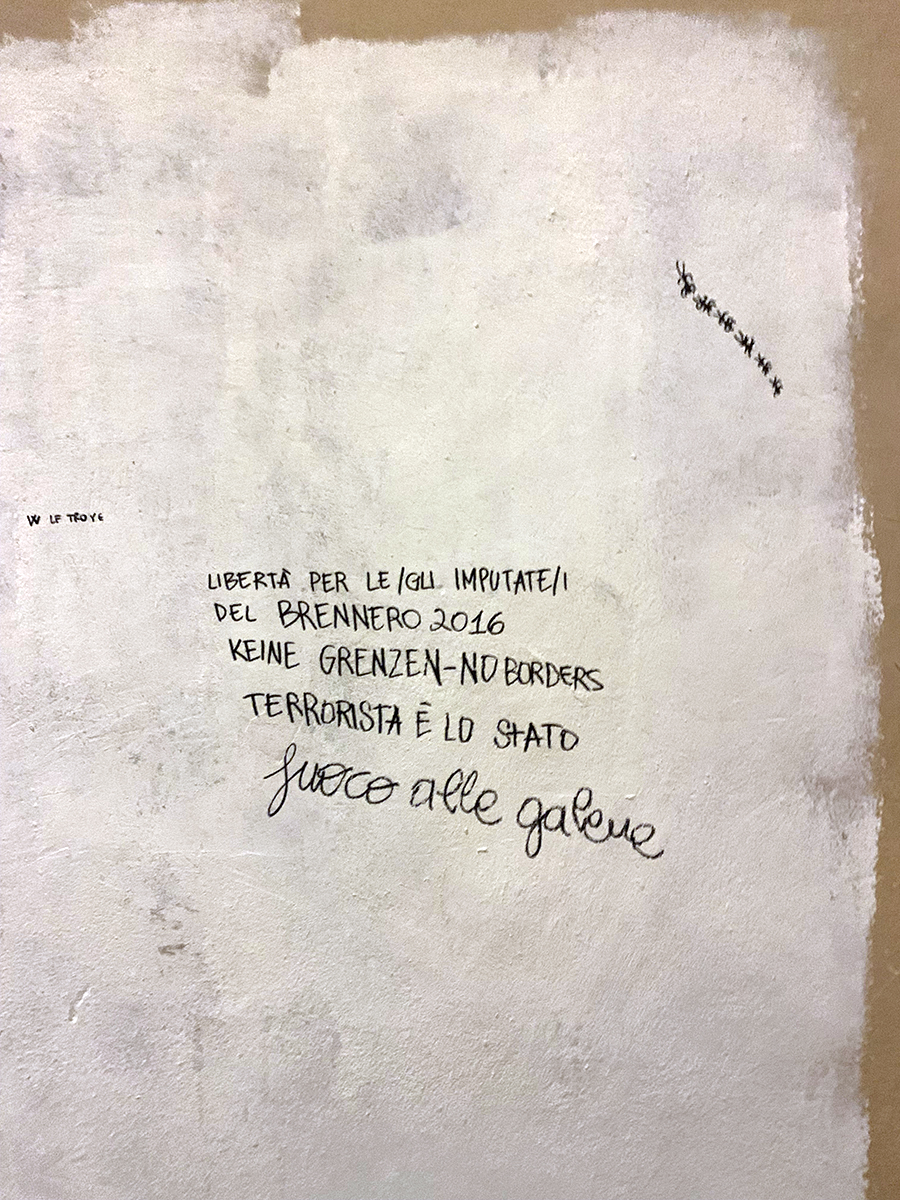 W LF TROYE
LIBERTÀ PER LE/GLI IMPUTATE/I
DEL BRENNERO 2016
KEINE GRENZEN-NO BORDERS
TERRORISTA È LO STATO
fuoco alle galere